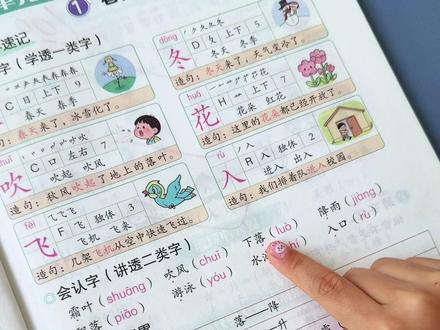 速记
字（学透一类字）
C 日 上下 9
春天 春季
春天来了，冰雪花了。
chuī
吹
C 口 左右 7
吹风
造句：秋风吹起了地上的落叶。
fēi
飞
F 飞 独体 3
飞机 飞来
造句：几架飞机从空中快速飞过。
dōng
冬
D 夂 上下 5
冬天 冬季
造句：冬天来了，天气变冷了。
huā
花
H 艹 上下 7
花朵 红花
造句：这里的花朵都已经开放了。
rù
入
R 入 独体 2
进入 出入
造句：我们排着队进入校园。
会认字（讲透二类字）
霜叶（shuāng） 吹风（chuī） 下落（luò） 降雨（jiàng）
飘落（piāo） 游泳（yóu） 入口（rù）
落—降